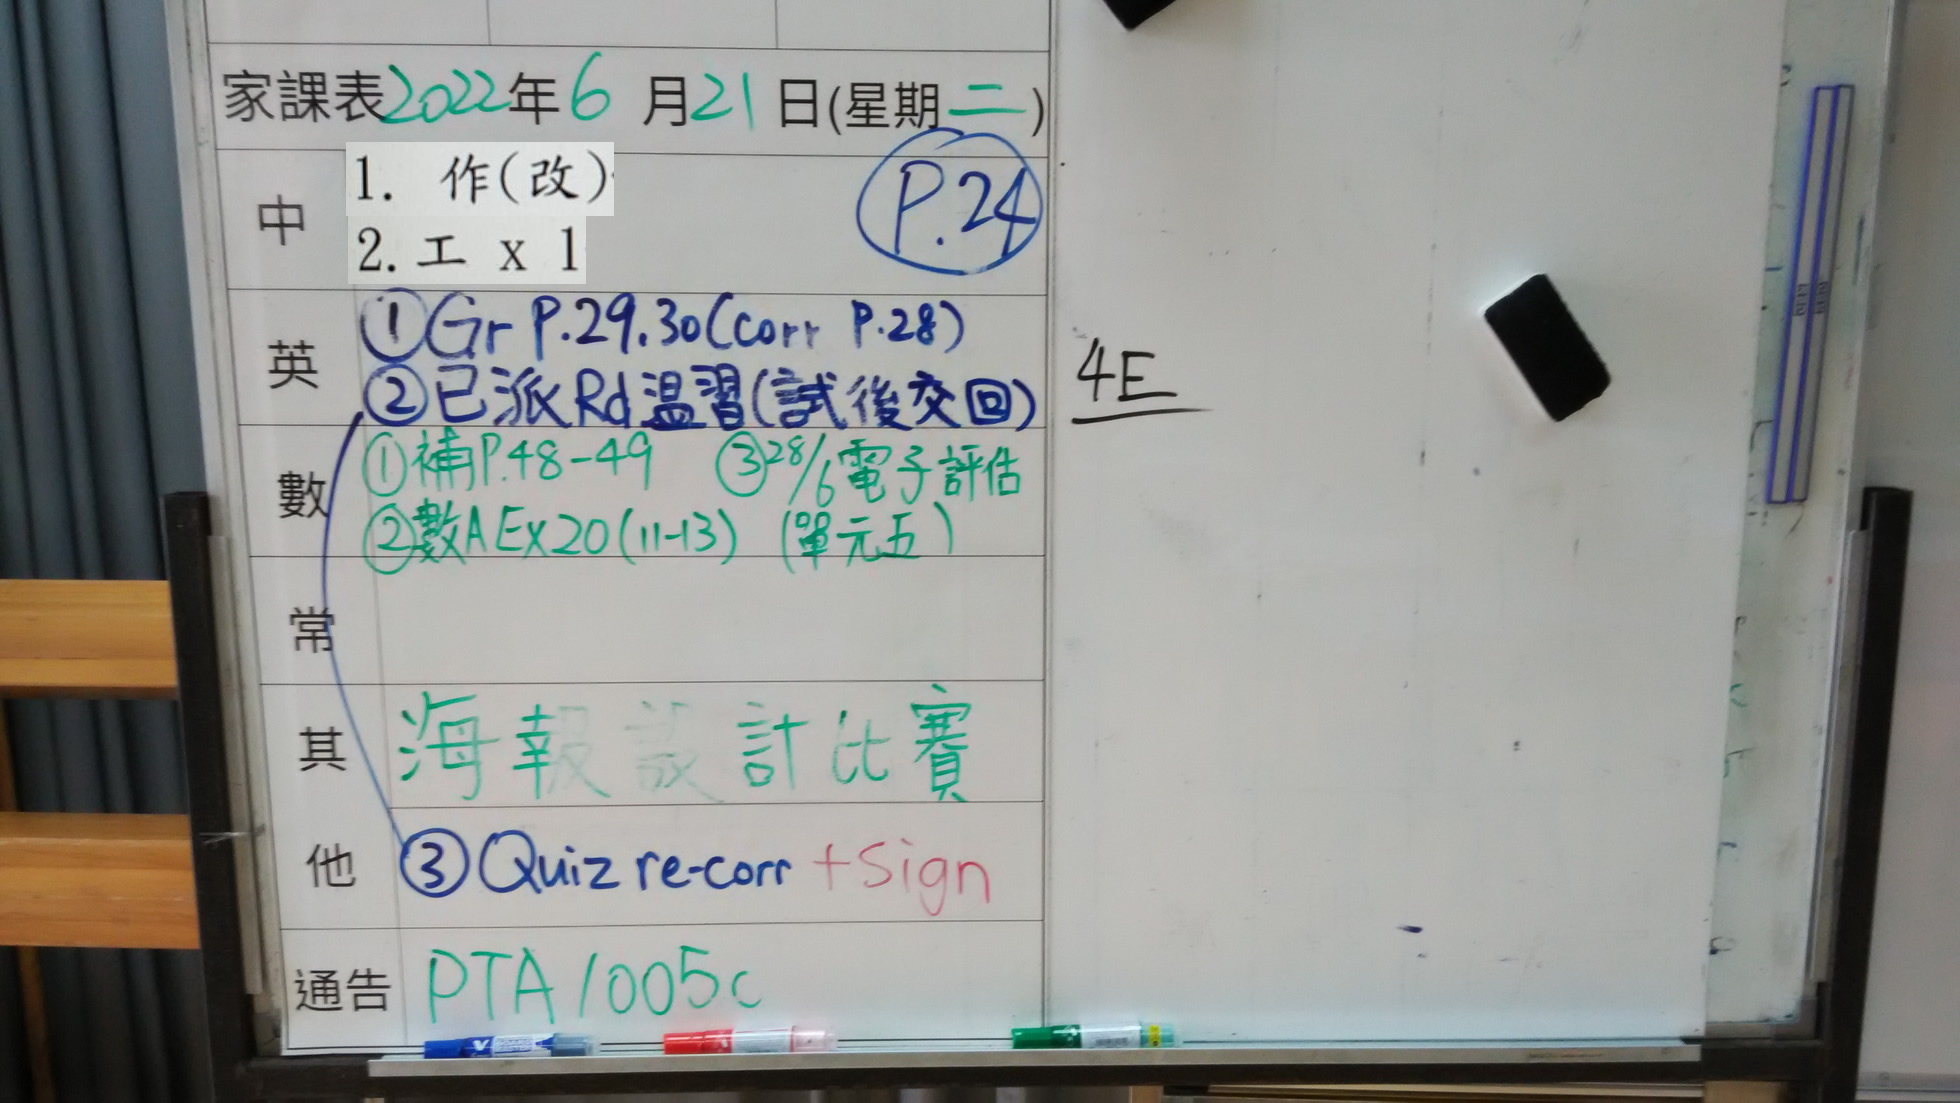 家課表2022年6月21日(星期二)
中
1. 作(改)
2. 工 x 1
P.24
英
①Gr P.29.30(corr P.28)
②已派Rd溫習(試後交回)
4E
數
①補P.48-49 ③28/6電子評估
②數A Ex20(11-13) (單元五)
常
其他
海報設計比賽
③Quiz re-corr +Sign
通告
PTA/005c